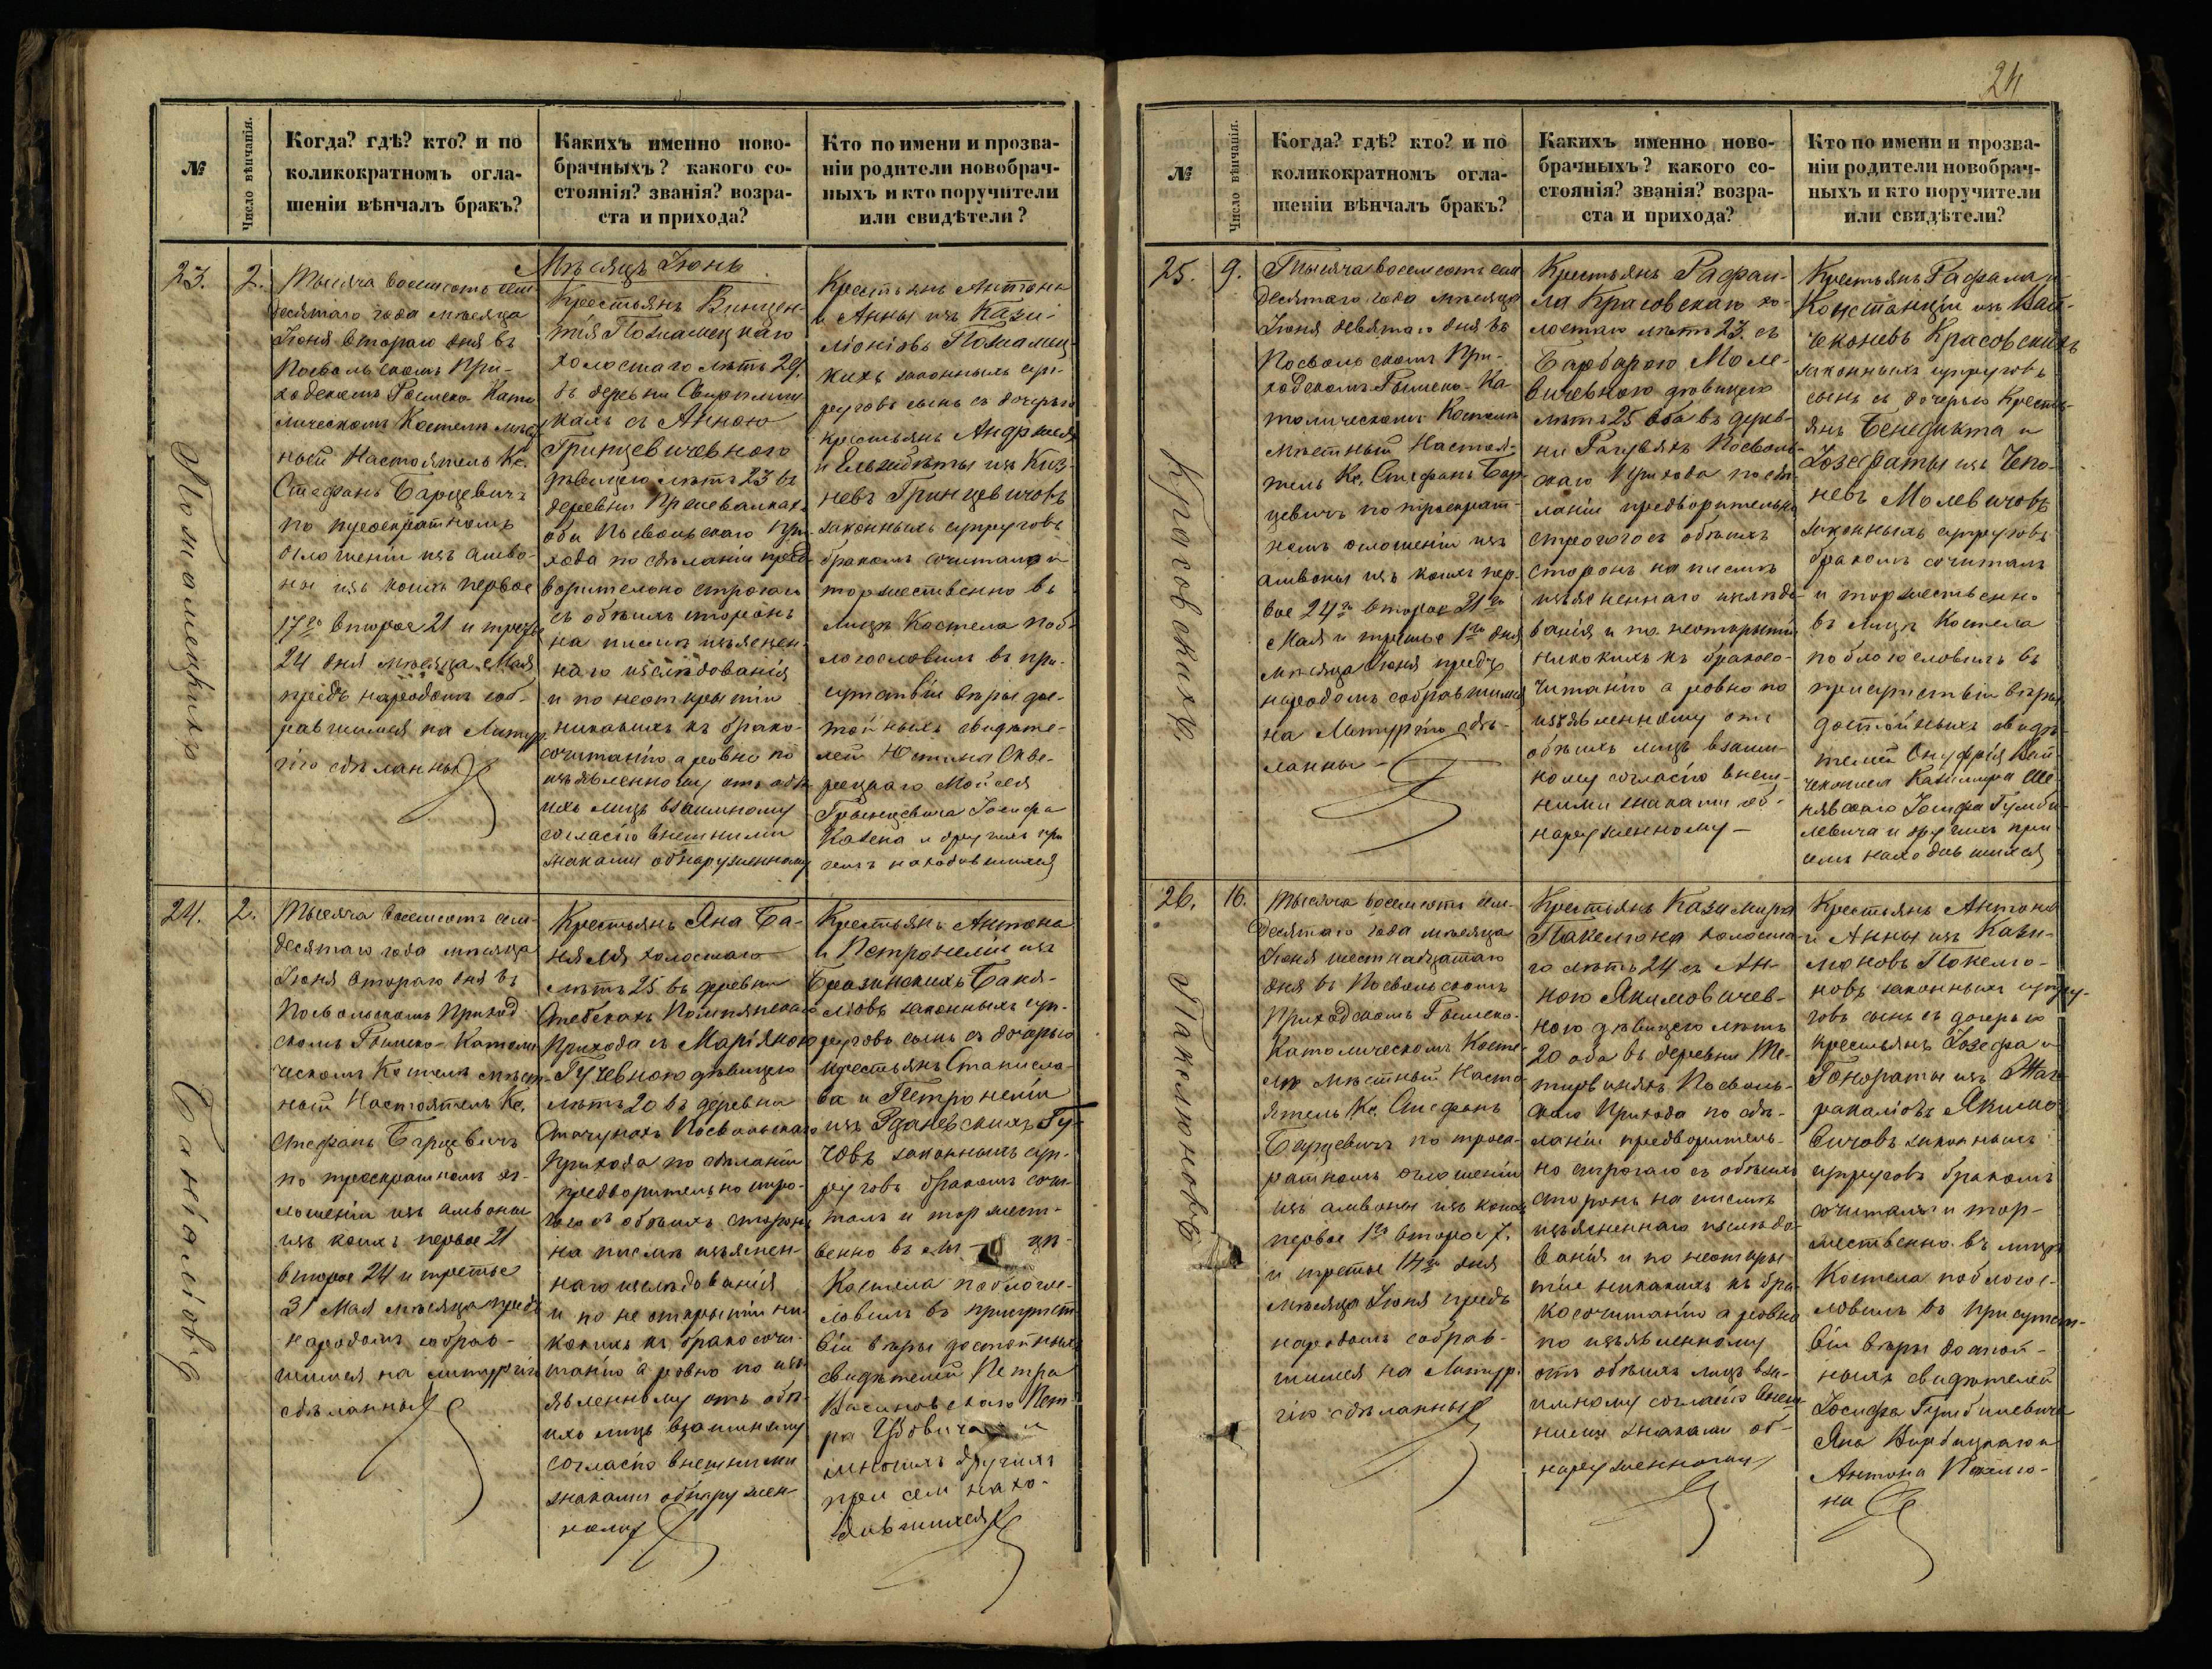 24
№
Число вѣнчанія.
Когда? гдѣ? кто? и по
коликократномъ огла-
шеніи вѣнчалъ бракъ?
Какихъ именно ново-
брачныхъ? какого со-
стоянія? званія? возра-
ста и прихода?
Кто по имени и прозва-
ніи родители новобрач-
ныхъ и кто поручители
или свидѣтели?
Мѣсяцъ Іюнь
23.
2.
Тысяча восемсотъ сем-
десятаго года мѣсяца
Іюня втораго дня въ
Посвольскомъ При-
ходскомъ Римско-Като
лическомъ Костелѣ мѣст
ный Настоятель Кс.
Стефанъ Барцевичъ
по троекратномъ
оглошеніи изъ амво-
ны изъ коихъ первое
17го второе 21 и третье
24 дня мѣсяца Мая
предъ народомъ соб-
равшимся на Литур
гію сдѣланный
Крестьянъ Винцен-
тія
холостаго лѣтъ 29.
въ деревни
кахъ съ Анною
Гринцевичевною
дѣвицею лѣтъ 23 въ
деревни
оба Посвольскаго При-
хода по сдѣланіи пред-
ворительно строгаго
съ обѣихъ сторонъ
на письмѣ изъяснен-
наго изслѣдованія
и по неоткрытіи
никакихъ къ брако-
сочитанію а ровно по
изъявленному отъ обѣ
ихъ лицъ взаимному
согласію внешними
знаками обнаруженному
Крестьянъ Антона
и Анны изъ Кази-
міоновъ
кихъ законныхъ суп-
руговъ сынъ съ дочерью
крестьянъ Андржея
и Ельжбѣты изъ Киз-
невъ Гринцевичовъ
законныхъ супруговъ
бракомъ сочиталъ и
торжественно въ
лицѣ Костела поб-
логословилъ въ при-
сутствіи вѣры дос-
тойныхъ свидѣте-
лей Юстина Скве-
рецкаго Мойсея
Гринцевича Іосифа
Казена и другихъ при
семъ находившихся
24.
2.
Тысяча восемсотъ сем-
десятаго года мѣсяца
Іюня втораго дня въ
Посвольскомъ Приход
скомъ Римско-Католи
ческомъ Костелѣ мѣст-
ный Настоятель Кс.
Стефанъ Барцевичъ
по троекратномъ ог-
лошеніи изъ амвоны
изъ коихъ первое 21
второе 24 и третье
31 Мая мѣсяца предъ
народомъ собрав-
шимся на литургію
сдѣланный
Крестьянъ Яна Ба-
ня
холостаго
лѣтъ 25 въ деревни
Прихода съ Маріяною
Гучевною дѣвицею
лѣтъ 20 въ деревни
Посвольскаго
Прихода по сдѣланіи
предворительно стро-
гаго съ обѣихъ сторонъ
на письмѣ изъяснен-
наго изслѣдованія
и по не открытіи ни-
какихъ къ бракосочи-
танію а ровно по изъ
явленному отъ обѣ-
ихъ лицъ взаимному
согласію внешними
знаками обнаружен-
ному
Крестьянъ Антона
и Петронеліи изъ
Бразинскихъ Баня-
ліовъ законныхъ суп-
руговъ сынъ съ дочерью
крестьянъ Станисла-
ва и Петронеліи
изъ Ядзевскихъ Гу-
човъ законныхъ суп-
руговъ бракомъ сочи-
талъ и торжест-
венно въ ли цѣ
Костела поблого-
словилъ въ присутст-
віи вѣры достойныхъ
свидѣтелей Петра
Пет-
ра и
многихъ другихъ
при сем нахо-
дившихся
Баніаліовъ
№
Число вѣнчанія.
Когда? гдѣ? кто? и по
коликократномъ огла-
шеніи вѣнчалъ бракъ?
Какихъ именно ново-
брачныхъ? какого со-
стоянія? званія? возра-
ста и прихода?
Кто по имени и прозва-
ніи родители новобрач-
ныхъ и кто поручители
или свидѣтели?
25.
9.
Тысяча восемсотъ сем
десятаго года мѣсяца
Іюня девятаго дня въ
Посвольскомъ При-
ходскомъ Римско-Ка-
толическомъ Костелѣ
мѣстный Настоя-
тель Кс. Стефанъ Бар-
цевичъ по троекрат-
номъ оглошеніи изъ
амвоны изъ коихъ пер-
вое 24го второе 31го
Мая и третье 1го дня
мѣсяца Іюня предъ
народомъ собравшимся
на Литургію сдѣ-
ланный
Крестьянъ Рафаи-
ла Красовскаго хо-
лостаго лѣтъ 23. съ
Барбарою Моле-
вичевною дѣвицею
лѣтъ 25 оба въ дерев-
ни Посволь-
скаго Прихода по сдѣ-
ланіи предворительно
строгаго съ обѣихъ
сторонъ на письмѣ
изъясненнаго изслѣдо-
ванія и по неоткрытіи
никакихъ къ бракосо-
читанію а ровно по
изъявленному отъ
обѣихъ лицъ взаим-
ному согласію внеш-
ними знаками об-
наруженному
Крестьянъ Рафала и
Констанціи изъ Вай-
чеконевъ Красовскихъ
законныхъ супруговъ
сынъ съ дочерью Кресть-
янъ Бенедикта и
Іозефаты изъ Чепо-
невъ Молевичовъ
законныхъ супруговъ
бракомъ сочиталъ
и торжественно
въ лицѣ Костела
поблогословилъ въ
присутствіи вѣры
достойныхъ свидѣ-
телей Онуфрія Вай-
чекониса Казимира Ше-
нявскаго Іосифа Гумби-
левича и другихъ при
семъ находившихся
Красовскихъ
26.
16.
Тысяча восемсотъ сем-
десятаго года мѣсяца
Іюня шестнадцатаго
дня въ Посвольскомъ
Приходскомъ Римско-
Католическомъ Косте-
лѣ мѣстный Насто-
ятель Кс. Стефанъ
Барцевичъ по троек-
ратномъ оглошеніи
изъ амвоны изъ коихъ
первое 1го второе 7.
и третье 14го дня
мѣсяца Іюня предъ
народомъ собрав-
шимся на Литур-
гію сдѣланный
Крестьянъ Казимира
Пакелюна холоста-
го лѣтъ 24 съ Ан-
ною Якимовичев-
ною дѣвицею лѣтъ
20 оба въ деревни
Посволь-
скаго Прихода по сдѣ-
ланіи предворитель-
но строгаго съ обѣихъ
сторонъ на письмѣ
изъясненнаго изслѣдо-
ванія и по неоткры-
тіи никакихъ къ бра-
косочитанію а ровно
по изъявленному
отъ обѣихъ лицъ вза-
имному согласію внеш-
ними знаками об-
наруженному
Крестьянъ Антона
и Анны изъ Кази-
моновъ Пакелю-
новъ законныхъ супру-
говъ сынъ съ дочерью
крестьянъ Іозефа и
Гонораты изъ
Якимо
вичовъ законныхъ
супруговъ бракомъ
сочиталъ и тор-
жественно въ лицѣ
Костела поблогос-
ловилъ въ присутст-
віи вѣры достой-
ныхъ свидѣтелей
Іосифа Гумбилевича
Яна Вирбицкаго и
Антона Пакелю-
на
Пакелюновъ